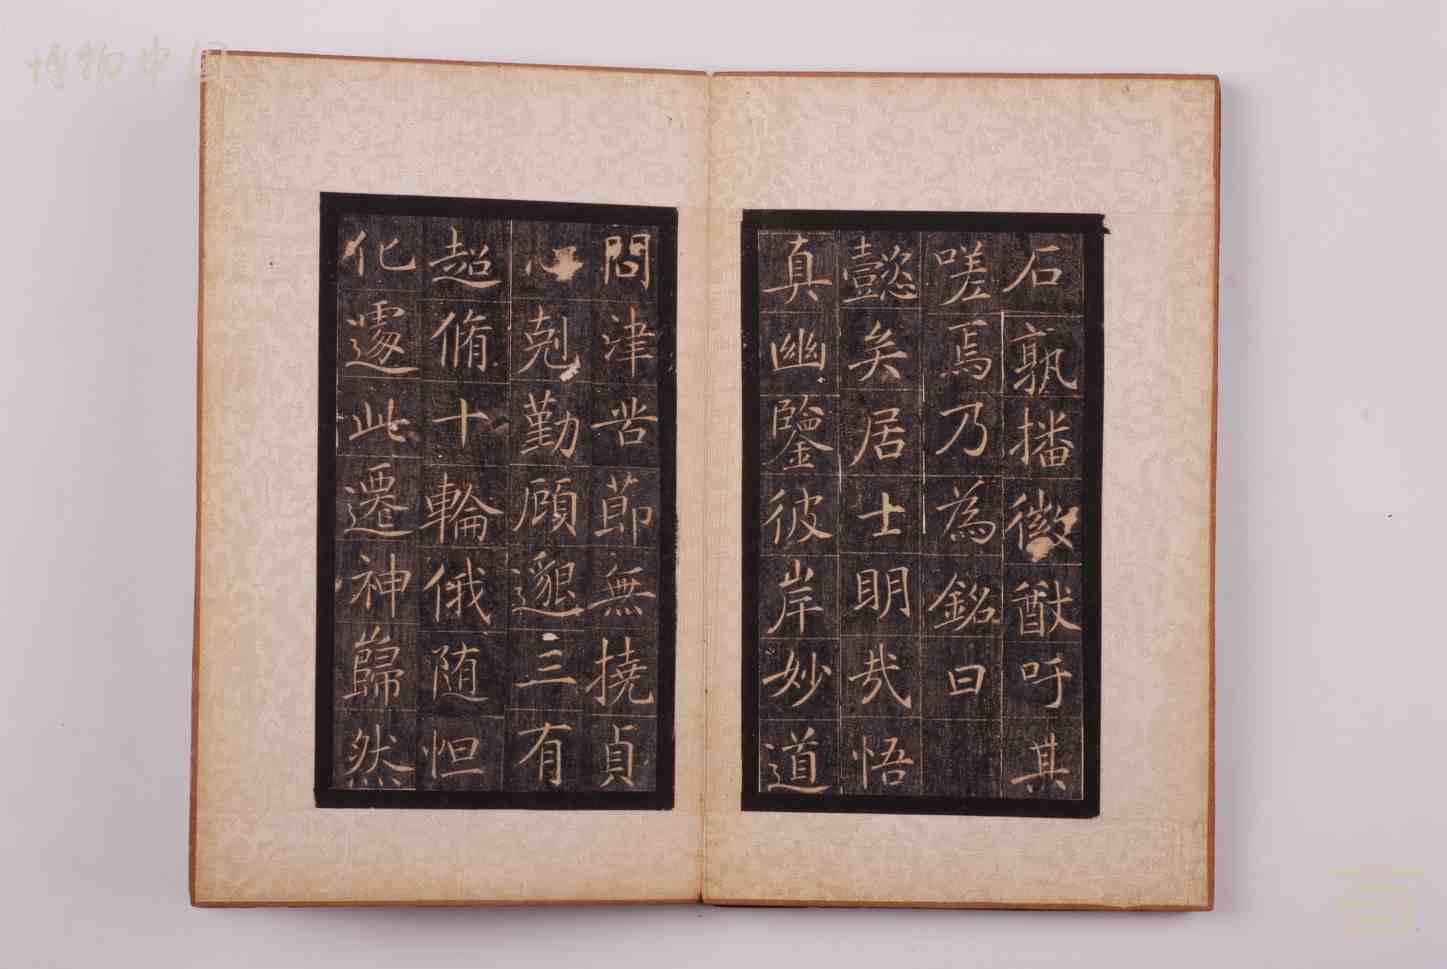 石孰播徽猷呼其
嗟焉乃為銘曰
懿矣居士明哉悟
真幽鑒彼岸妙道
問津苦節無撓貞
心剋勤顧邈三有
超脩十輪俄随怛
化遽此遷神歸然
博物中国